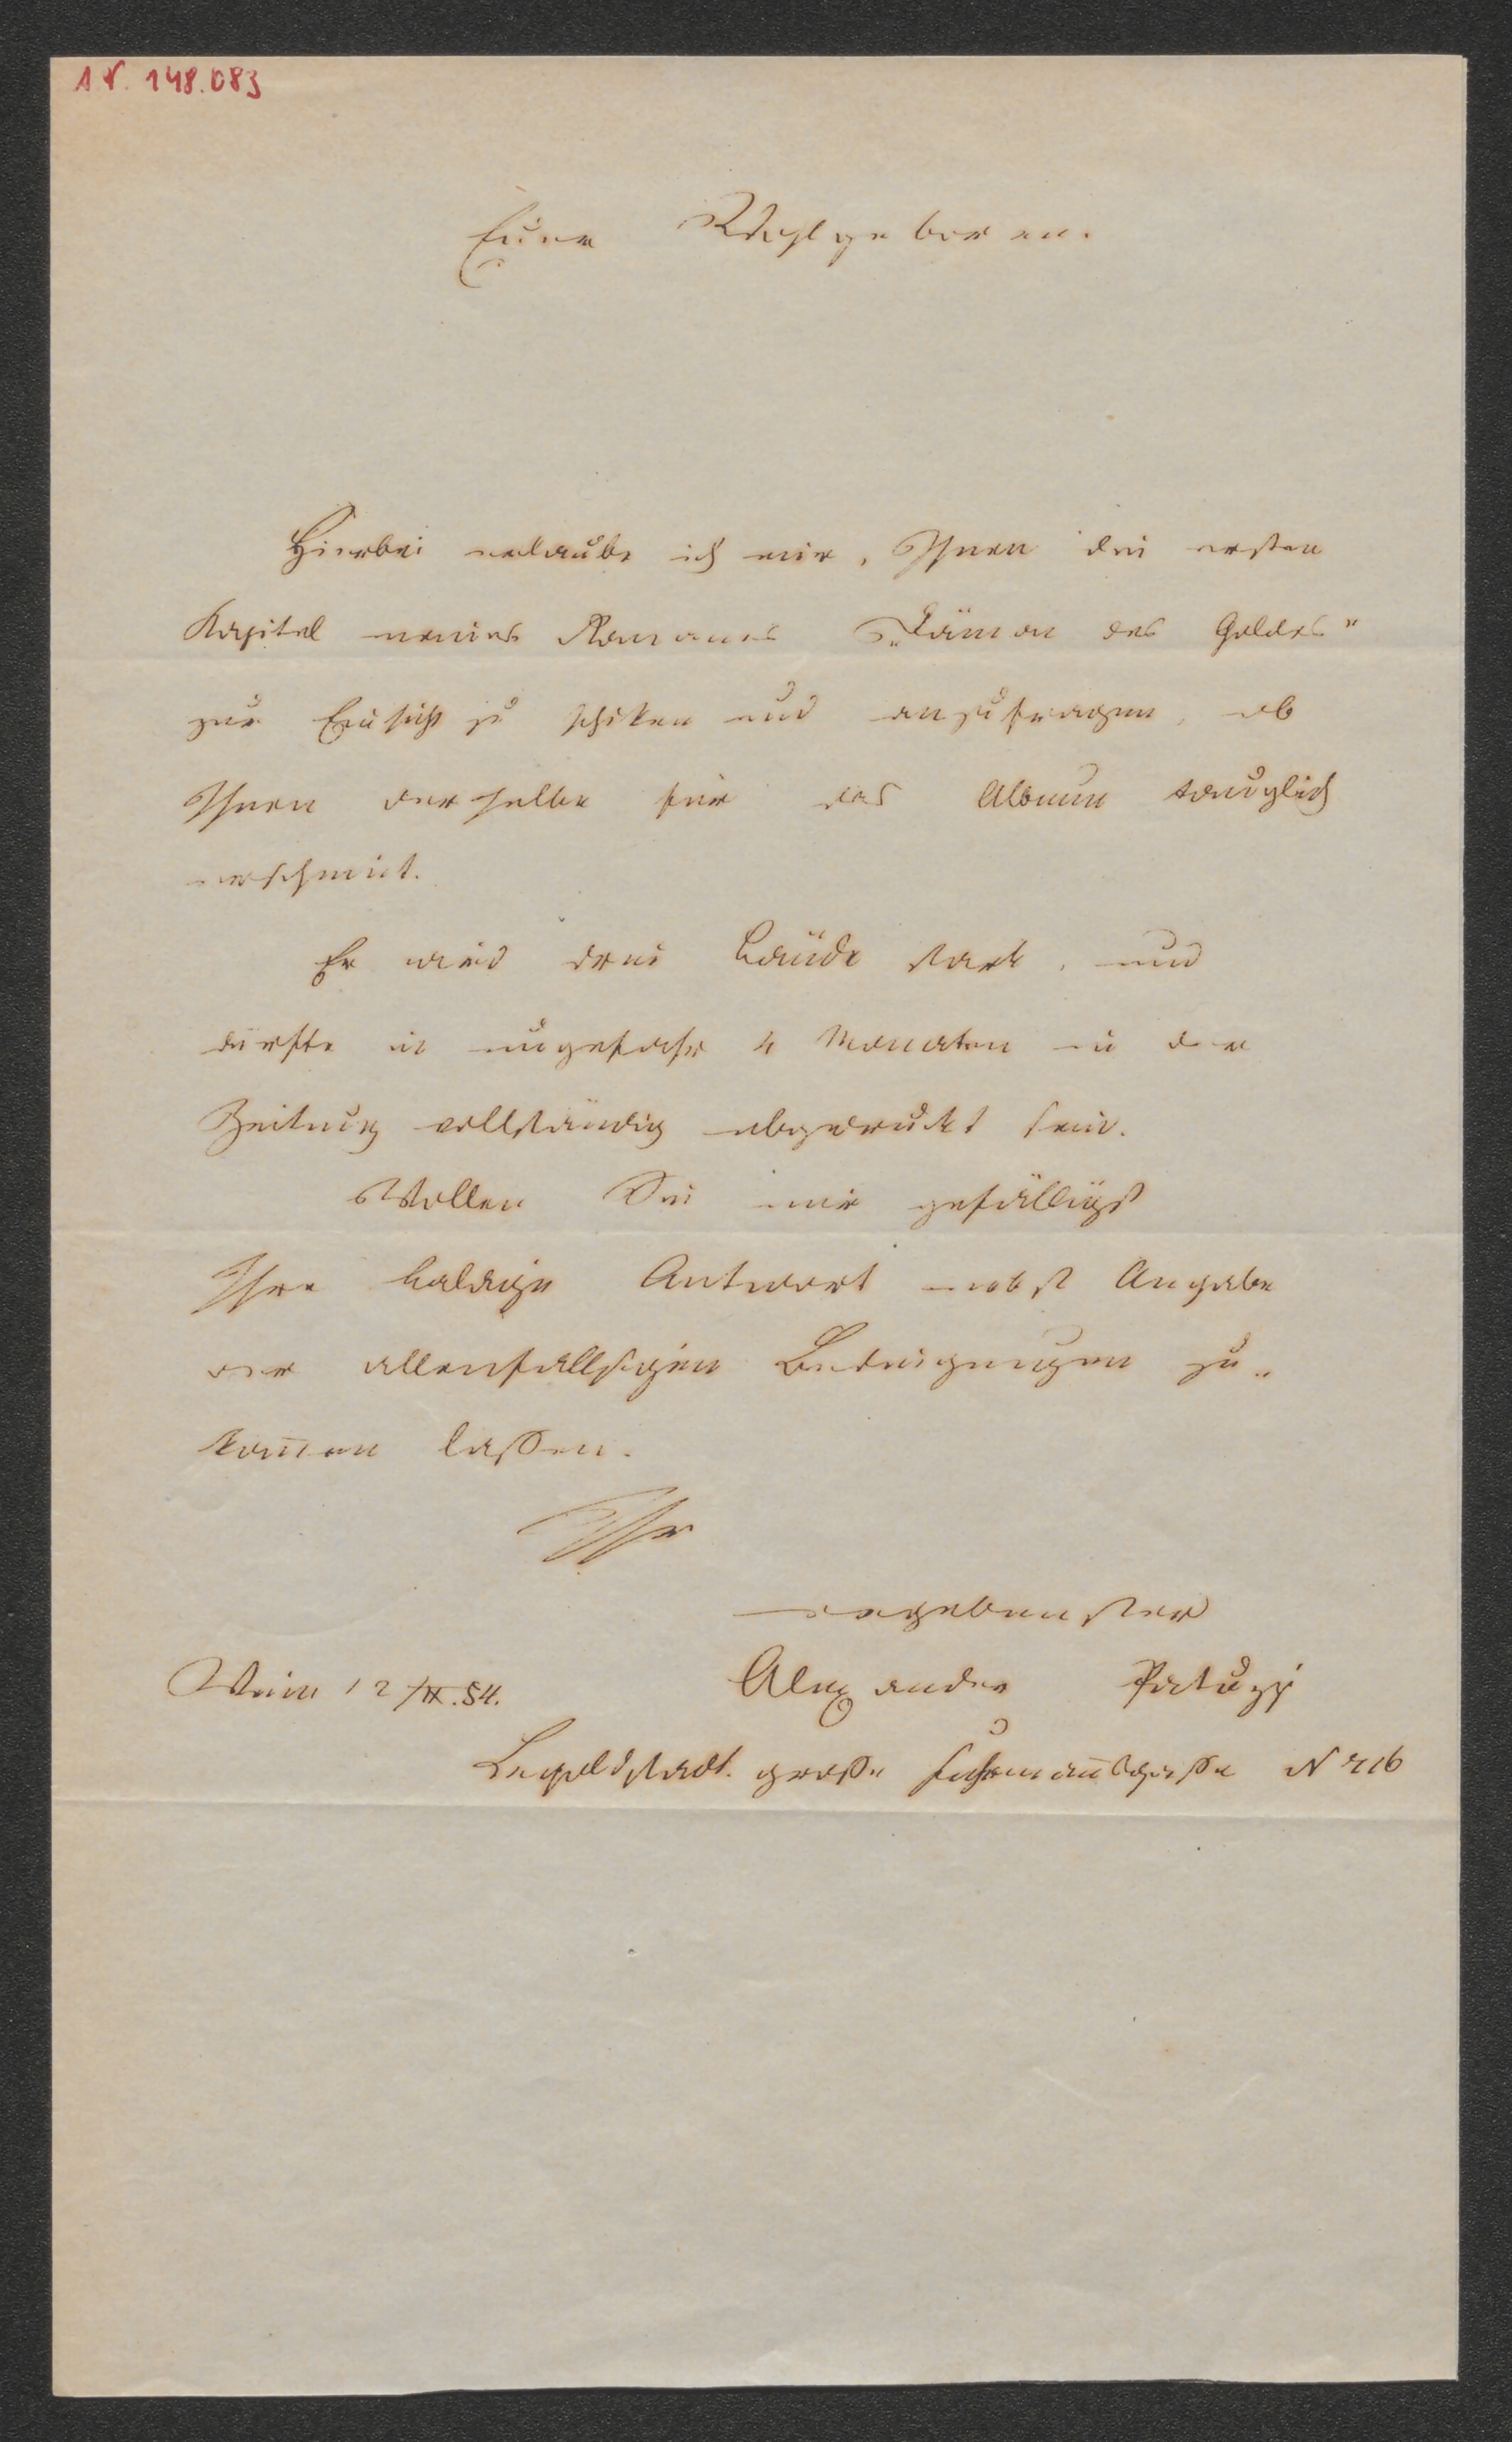 I.N. 148.083
Euer Wohlgeboren.
Hierbei erlaube ich mir, Ihnen die ersten
Kapitel meines Romanes „Dämon des Goldes"
zur Einsicht zu schiken und anzufragen, ob
Ihnen derselbe für das Album tauglich
erscheint.
Er wird drei Bände stark, und
dürfte in ungefähr 4 Monaten in der
Zeitung vollständig abgedruckt sein.
Wollen Sie mir gefälligst
Ihre baldige Antwort nebst Angabe
der allenfallsigen Bedingungen zu-
kom̅en lassen.
Ihr
ergebenster
Wien 12/IX.54. Alexander Patuzzi
Leopoldstadt. große Fuhrman̅sgasse N